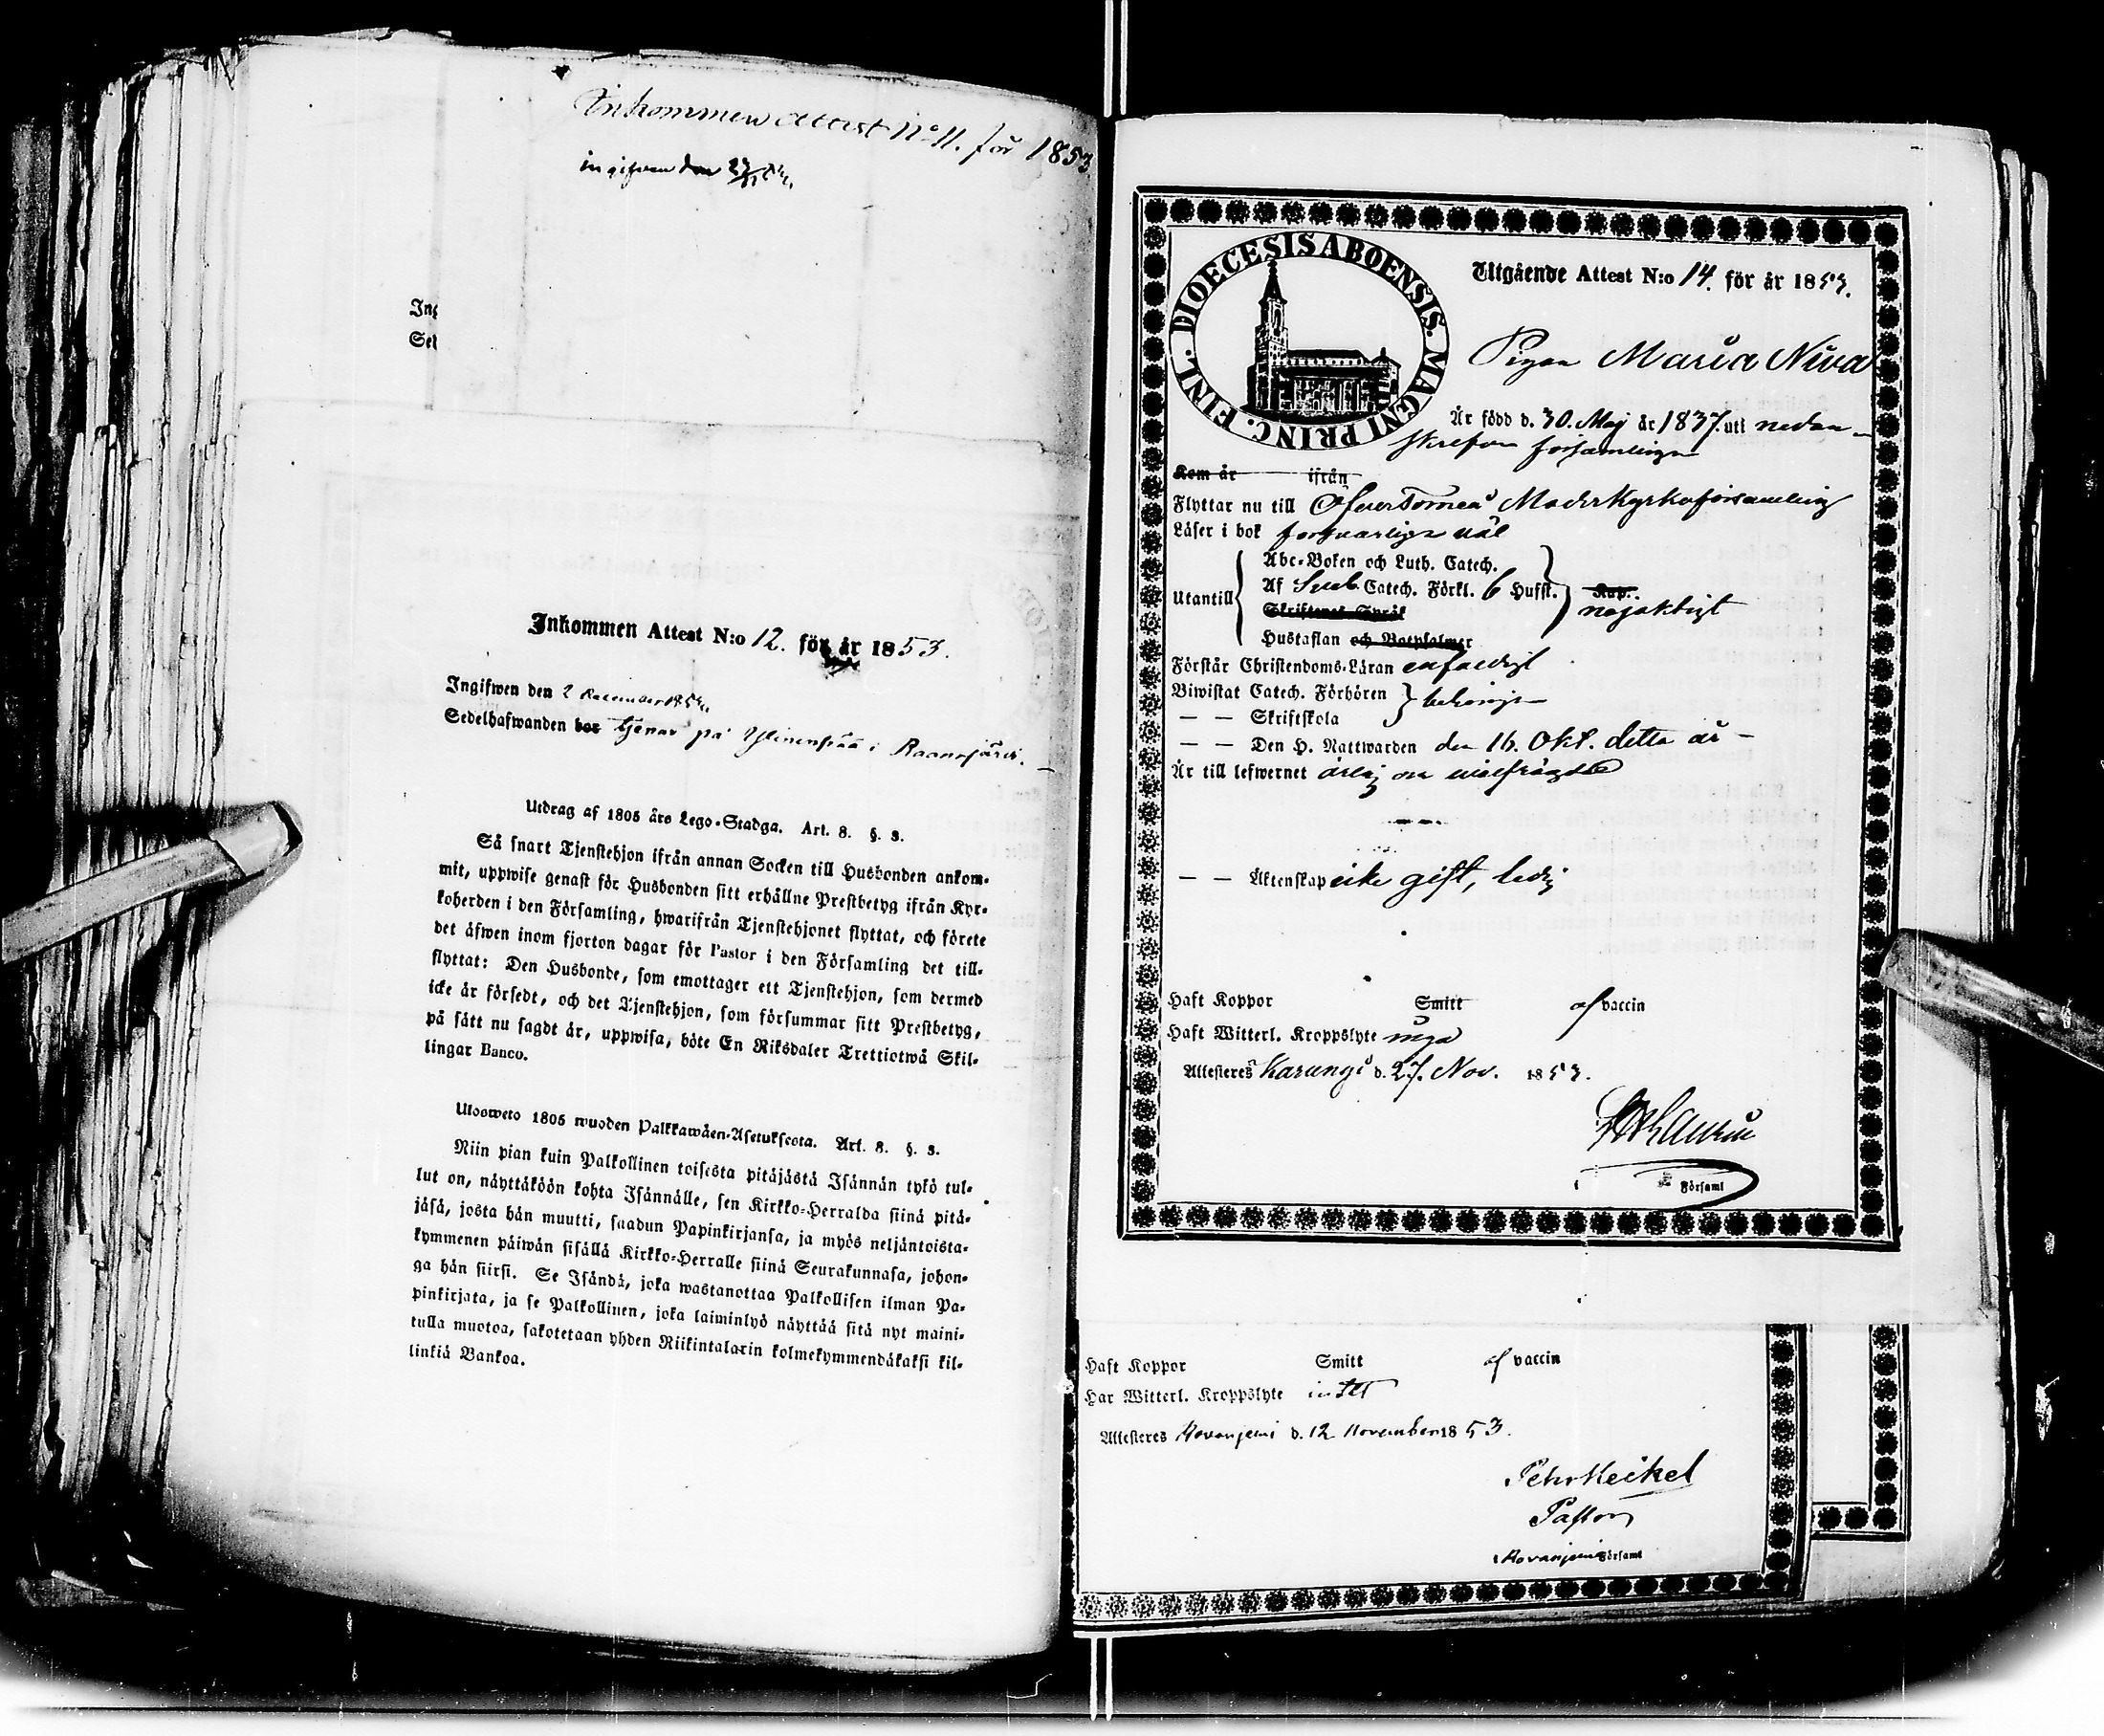 Inkommen Attest No 11. för 1853
ingifven den
Ing
Sel
Inkommen Attest N:o 12. för år 1853.
Ingifwen den 2 December 1853.
Sedelhafwanden bor tjenar på Ylinenpää i Raanojärvi.
Utdrag af 1805 års Lego-Stadga. Art. 8. §. 3.
Så snart Tjenstehjon ifrån annan Socken till Husbonden ankom-
mit, uppwise genast för Husbonden sitt erhållne Prestbetyg ifrån Kyr-
koherden i den Församling, hwarifrån Tjenstehjonet flyttat, och förete
det äfwen inom fjorton dagar för Pastor i den Församling det till-
flyttat: Den Husbonde, som emottager ett Tjenstehjon, som dermed
icke är försedt, och det Tjenstehjon, som försummar sitt Prestbetyg,
på sätt nu sagdt är, uppwisa, böte En Riksdaler Trettiotwå Skil-
lingar Banco.
Uloosweto 1805 wuoden Palkkawäen-Asetuksesta. Art. 8. §. 3.
Niin pian kuin Palkollinen toisesta pitäjästä Isännän tykö tul-
lut on, näyttäköön kohta Isännälle, sen Kirkko-Herralda siinä pitä-
jäsä, josta hän muutti, saadun Papinkirjansa, ja myös neljäntoista-
kymmenen päiwän sisällä Kirkko-Herralle siinä Seurakunnasa, johon-
ga hän siirsi. Se Isändä, joka wastanottaa Palkollisen ilman Pa-
pinkirjata, ja se Palkollinen, joka laiminlyö näyttää sitä nyt maini-
tulla muotoa, sakotetaan yhden Riikintalarin kolmekymmendäkaksi kil-
linkiä Bankoa.
FINL. DIOECESIS ABOENSIS. MAGNI PRINC.
Utgående Attest N:o 14. för år 1853.
Pigan Maria Niva
Är född d. 30. Maj år 1837. uti nedan-
skrefne församlingen
Kom år ifrån
Flyttar nu till Öfvertorneå Moderkyrkoförsamling
Läser i bok försvarligen väl
Abc-Boken och Luth. Catech.
Utantill Af Sveb. Catech. Förkl. 6 Hufst. Kap. nöjaktigt
Skriftenes Språk
Hustaflan och Botpsalmer
Förstår Christendoms-Läran enfaldigt
Biwistat Catech. Förhören behörigen
— — Skriftskola
— — Den H. Nattwarden den 16. Okt. detta år —
Är till lefwernet ärlig och wälfrägdad
— — Äktenskap icke gift, ledig
Haft Koppor Smitt af vaccin
Haft Witterl. Kroppslyte inga
Attesteres Karungi d. 27. Nov. 1853.
Församl
Haft Koppor Smitt af vaccin
Har Witterl. Kroppslyte intet
Attesteres Rovanjemi d. 12 November 1853.
Pehr Heikel
Pastor
i Rovanjemi Församl